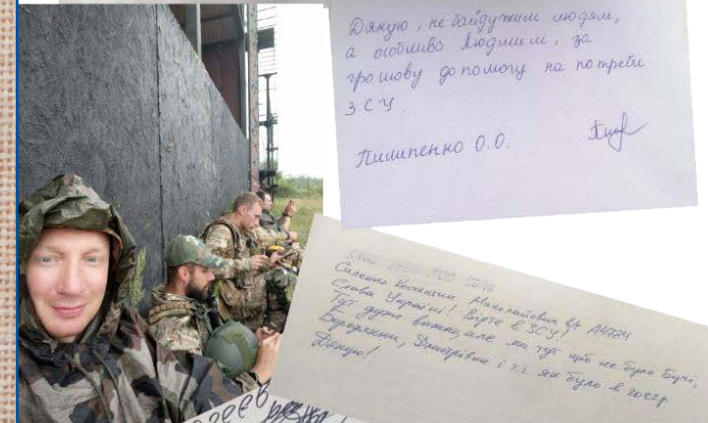 Дякую, не байдужим людям,
а особливо Людмилі, за
грошову допомогу на потреби
ЗСУ.
Пилипенко О.О.
Миколайович в/ч
Слава Україні! Вірте в ЗСУ!
Тут дуже важко, але ми тут щоб не було Бучі,
Бородянки, Дмитрівки і т.і. як було в
Дякую!